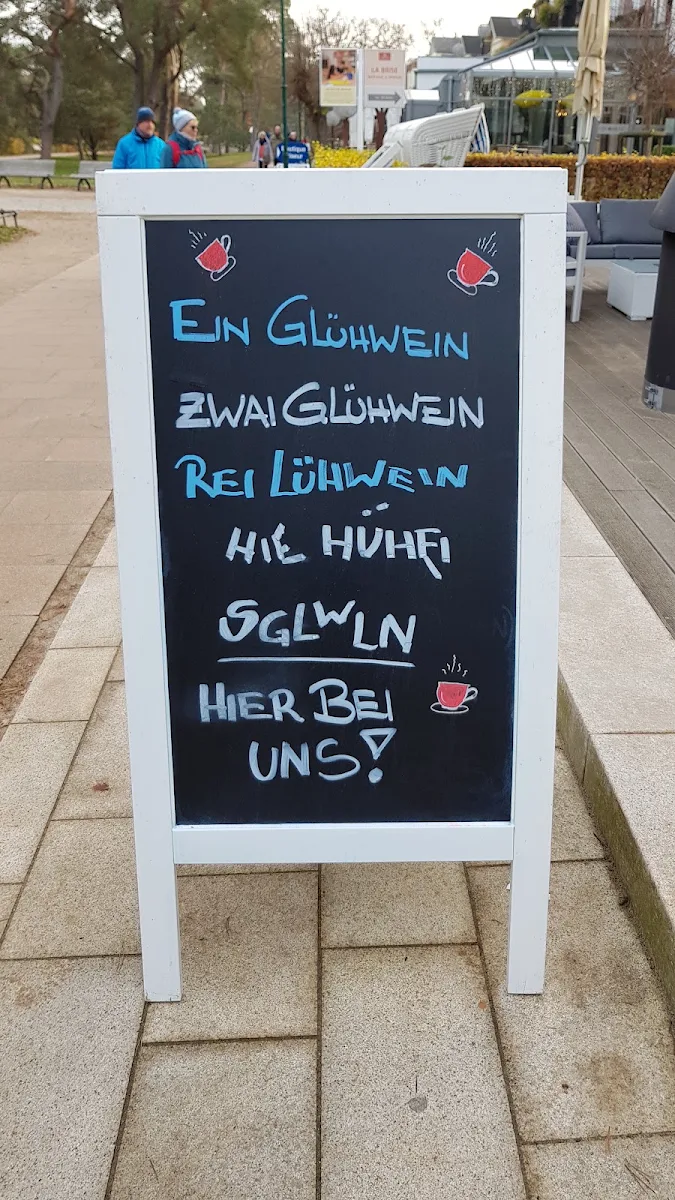 LA BRISE
Boutique
EIN GLÜHWEIN
ZWAI GLÜHWEIN
REI LÜHWEIN
HIE HÜHFI
SGLWLN
HIER BEI
UNS!